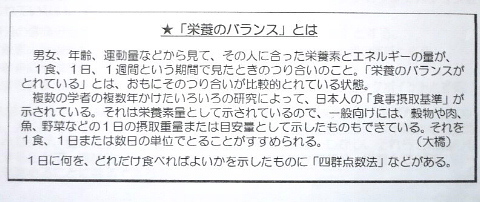 ★「栄養のバランス」とは
男女、年齢、運動量などから見て、その人に合った栄養素とエネルギーの量が、
１食、１日、１週間という期間で見たときのつり合いのこと。「栄養のバランスが
とれている」とは、おもにそのつり合いが比較的とれている状態。
複数の学者の複数年かけたいろいろの研究によって、日本人の「食事摂取基準」が
示されている。それは栄養素量として示されているので、一般向けには、穀物や肉、
魚、野菜などの１日の摂取重量または目安量として示したものもできている。それを
１食、１日または数日の単位でとることがすすめられる。（大橋）
１日に何を、どれだけ食べればよいかを示したものに「四群点数法」などがある。